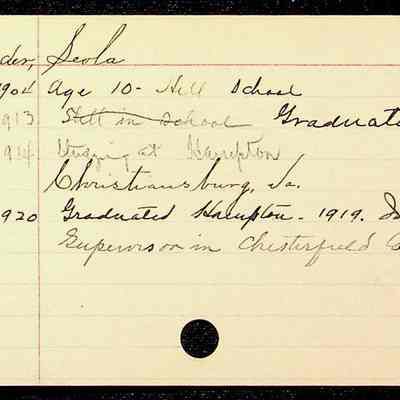 der, Seola
1904 Age 10 - Hill School
1913 Still in School Graduate
1914 Studying at Hampton
Christiansburg, Va.
1920 Graduated Hampton - 1919.
Supervisor in Chesterfield Co